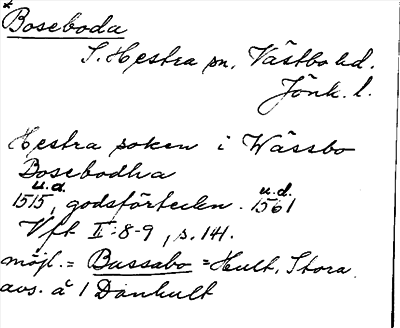 * Boseboda
S. Hestra sn. Västbo hd.
Jönk. l.
Hestra soken i Wässbo
Bosebodha
u.d. u.d.
1515, godsförteckn. 1561
Vft II:8-9, s. 141.
möjl. = Bussabo = Hult, Stora
avs. å 1 Dankult